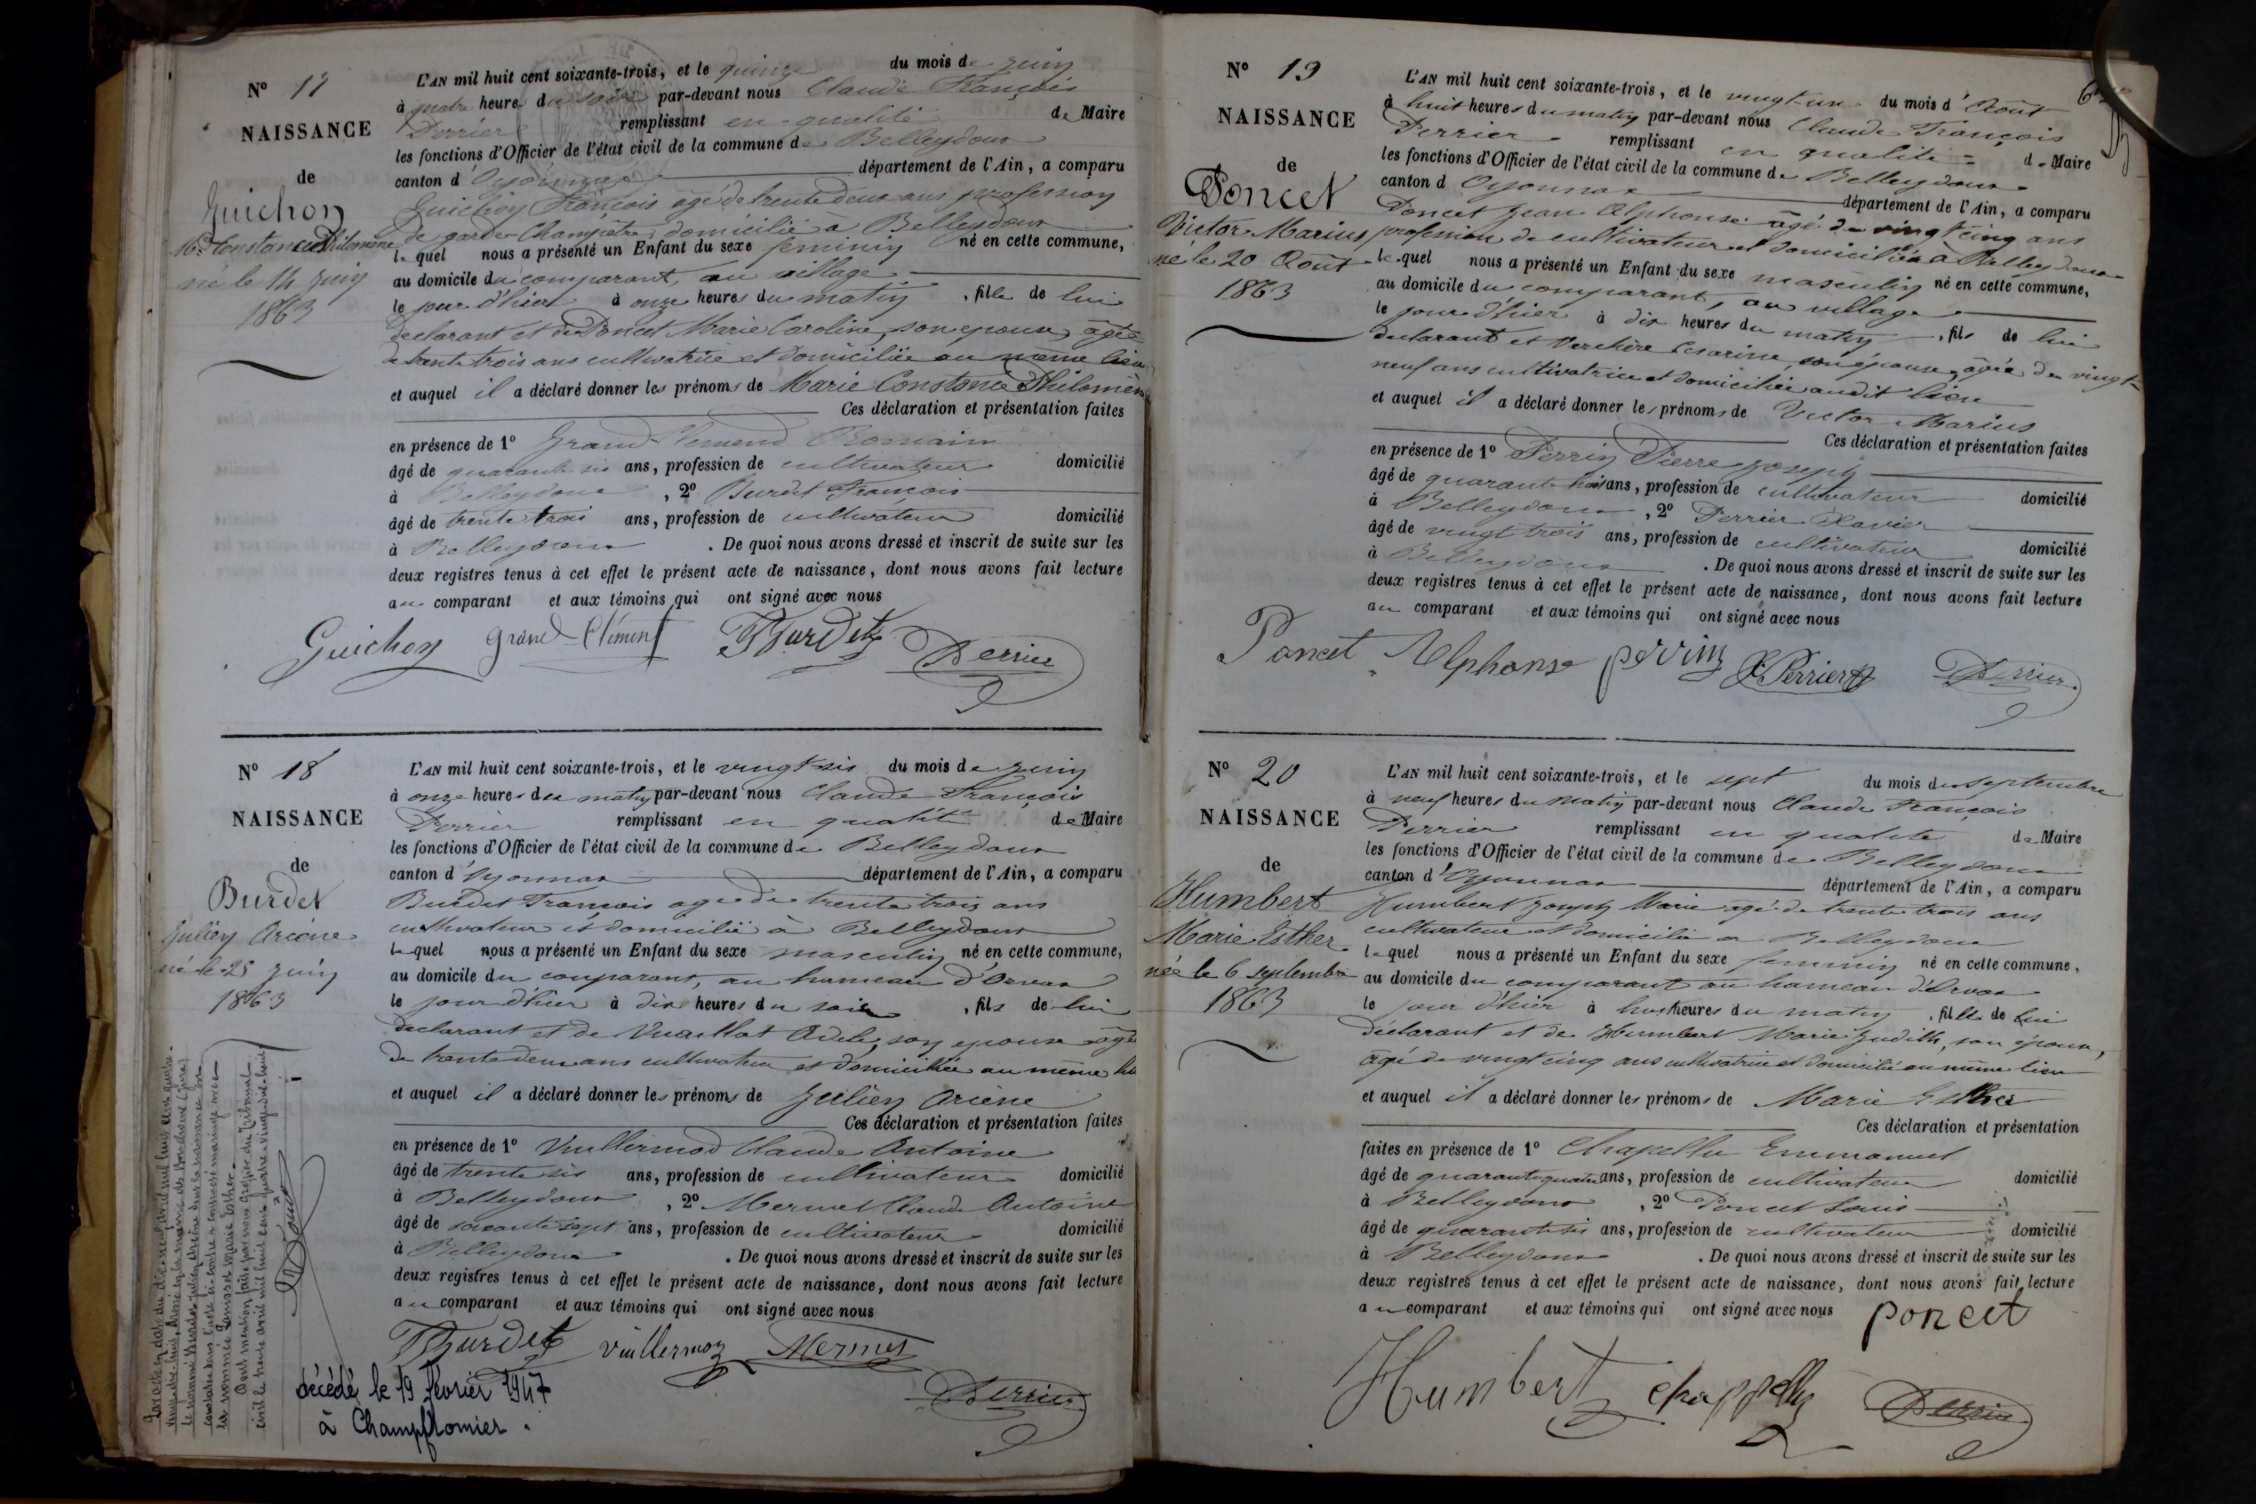 N° 17
NAISSANCE
de
Guichon
Mie Constance Philomène
né le 14 juin
1863
L'AN mil huit cent soixante-trois, et le quinze du mois de juin
à quatre heures du soir par-devant nous Claude François
Perrier remplissant en qualité de Maire
les fonctions d'Officier de l'état civil de la commune de Belleydoux
canton d'Oyonnax département de l'Ain, a comparu
Guichon François âgé de trente deux ans profession
de garde-Champêtre domicilié à Belleydoux
lequel nous a présenté un Enfant du sexe féminin né en cette commune,
au domicile du comparant, au village
le jour d'hier à onze heures du matin, fille de lui
déclarant et de Poncet Marie Caroline, son épouse, âgée
de trente trois ans cultivatrice et domiciliée au même lieu
et auquel il a déclaré donner les prénoms de Marie Constance Philomène
Ces déclaration et présentation faites
en présence de 1° Grand-Clément Romain
âgé de quarante six ans, profession de cultivateur domicilié
à Belleydoux, 2° Burdet François
âgé de trente trois ans, profession de cultivateur domicilié
à Belleydoux. De quoi nous avons dressé et inscrit de suite sur les
deux registres tenus à cet effet le présent acte de naissance, dont nous avons fait lecture
au comparant et aux témoins qui ont signé avec nous
Guichon Grand-Clément Burdet Perrier
N° 18
NAISSANCE
de
Burdet
Julien Arcène
né le 25 juin
1863
L'AN mil huit cent soixante-trois, et le vingt six du mois de juin
à onze heures du matin par-devant nous Claude François
Perrier remplissant en qualité de Maire
les fonctions d'Officier de l'état civil de la commune de Belleydoux
canton d'Oyonnax département de l'Ain, a comparu
Burdet François agé de trente trois ans
cultivateur et domicilié à Belleydoux
lequel nous a présenté un Enfant du sexe masculin né en cette commune,
au domicile du comparant, au hameau d'Orvaz
le jour d'hier à dix heures du soir, fils de lui
déclarant et de Vuaillat Adèle, son épouse agée
de trente deux ans cultivatrice et domiciliée au même lieu
et auquel il a déclaré donner les prénoms de Julien Arcène
Ces déclaration et présentation faites
en présence de 1° Vuillermoz Claude Antoine
âgé de trente six ans, profession de cultivateur domicilié
à Belleydoux, 2° Mermet Claude Antoine
âgé de soixante sept ans, profession de cultivateur domicilié
à Belleydoux. De quoi nous avons dressé et inscrit de suite sur les
deux registres tenus à cet effet le présent acte de naissance, dont nous avons fait lecture
au comparant et aux témoins qui ont signé avec nous
Burdet Vuillermoz Mermet
Perrier
décédé le 19 février 1947
à Champfromier.
N° 19
NAISSANCE
de
Poncet
Victor Marius
né le 20 Août
1863
L'AN mil huit cent soixante-trois, et le vingt-un du mois d'Août
à huit heures du matin par-devant nous Claude François
Perrier remplissant en qualité de Maire
les fonctions d'Officier de l'état civil de la commune de Belleydoux
canton d'Oyonnax département de l'Ain, a comparu
Poncet Jean Alphonse âgé de vingt cinq ans
profession de cultivateur et domicilié à Belleydoux
lequel nous a présenté un Enfant du sexe masculin né en cette commune,
au domicile du comparant, au village
le jour d'hier à dix heures du matin, fils de lui
déclarant et Verchère Césarine, son épouse, âgée de vingt-
neuf ans cultivatrice et domiciliée audit lieu
et auquel il a déclaré donner les prénoms de Victor Marius
Ces déclaration et présentation faites
en présence de 1° Perrin Pierre Joseph
âgé de quarante trois ans, profession de cultivateur domicilié
à Belleydoux, 2° Perrier Xavier
âgé de vingt trois ans, profession de cultivateur domicilié
à Belleydoux. De quoi nous avons dressé et inscrit de suite sur les
deux registres tenus à cet effet le présent acte de naissance, dont nous avons fait lecture
au comparant et aux témoins qui ont signé avec nous
Poncet Alphonse perrin X. Perrier Perrier
N° 20
NAISSANCE
de
Humbert
Marie Esther
née le 6 septembre
1863
L'AN mil huit cent soixante-trois, et le sept du mois de septembre
à neuf heures du matin par-devant nous Claude François
Perrier remplissant en qualité de Maire
les fonctions d'Officier de l'état civil de la commune de Belleydoux
canton d'Oyonnax département de l'Ain, a comparu
Humbert Joseph Marie agé de trente trois ans
cultivateur et domicilié à Belleydoux
lequel nous a présenté un Enfant du sexe féminin né en cette commune,
au domicile du comparant au hameau d'Orvaz
le jour d'hier à huit heures du matin, fille de lui
déclarant et de Humbert Marie Judith, son épouse,
agé de vingt cinq ans cultivatrice et domicilié au même lieu
et auquel il a déclaré donner les prénoms de Marie Esther
Ces déclaration et présentation
faites en présence de 1° Chapellu Emmanuel
âgé de quarante quatre ans, profession de cultivateur domicilié
à Belleydoux, 2° Poncet Louis
âgé de quarante six ans, profession de cultivateur domicilié
à Belleydoux. De quoi nous avons dressé et inscrit de suite sur les
deux registres tenus à cet effet le présent acte de naissance, dont nous avons fait lecture
au comparant et aux témoins qui ont signé avec nous
poncet
Humbert Perrier